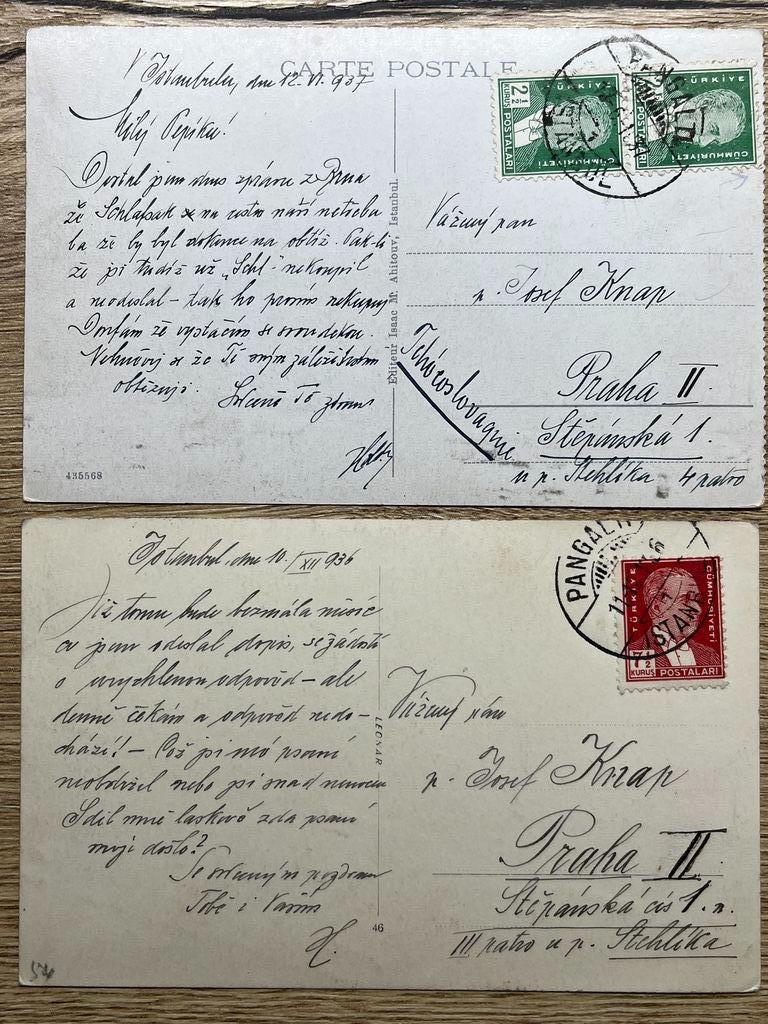 CARTE POSTALE
V Istanbulu, dne 12.VI.937
Milý Pepíku!
Dostal jsem dnes zprávu z Brna
že Schlafsak na cestu naší netřeba
ba že by byl dokonce na obtíž. Pak-li
že jsi tudíž už "Schl"- nekoupil
a neodeslal - tak ho prosím nekupuj
Doufám že vystačím se svou dekou.
že Tě svým záležitostem
obtěžuji.
Srdečně Tě zdraví
435568
Editeur Isaac M. Ahitouv, Istanbul.
TÜRKİYE
CÜMHURİYETİ
2½
KURUŞ POSTALARI
TÜRKİYE
CÜMHURİYETİ
POSTALARI
PANGALTI
İSTANBUL
Vážený pan
p. Josef Knap
Praha II.
Štěpánská 1.
u p. Stehlíka 4 patro
Tchécoslovaquie
Istanbul, dne 10./XII 936
Již tomu bude bezmála měsíc
co jsem odeslal dopis, se žádostí
o urychlenou odpověď - ale
denně čekám a odpověď nedo-
chází! - Což jsi mé psaní
neobdržel nebo jsi snad nemocen
Sděl mně laskavě zda psaní
moje došlo?
Se srdečným pozdravem
Tobě i Vašim
H.
54
LEONAR
46
PANGALTI
İSTANB
TÜRKİYE
CÜMHURİYETİ
7½
KURUŞ POSTALARI
Vážený pán
p. Josef Knap
Praha II.
Štěpánská čís 1.
III patro u p. Stehlíka